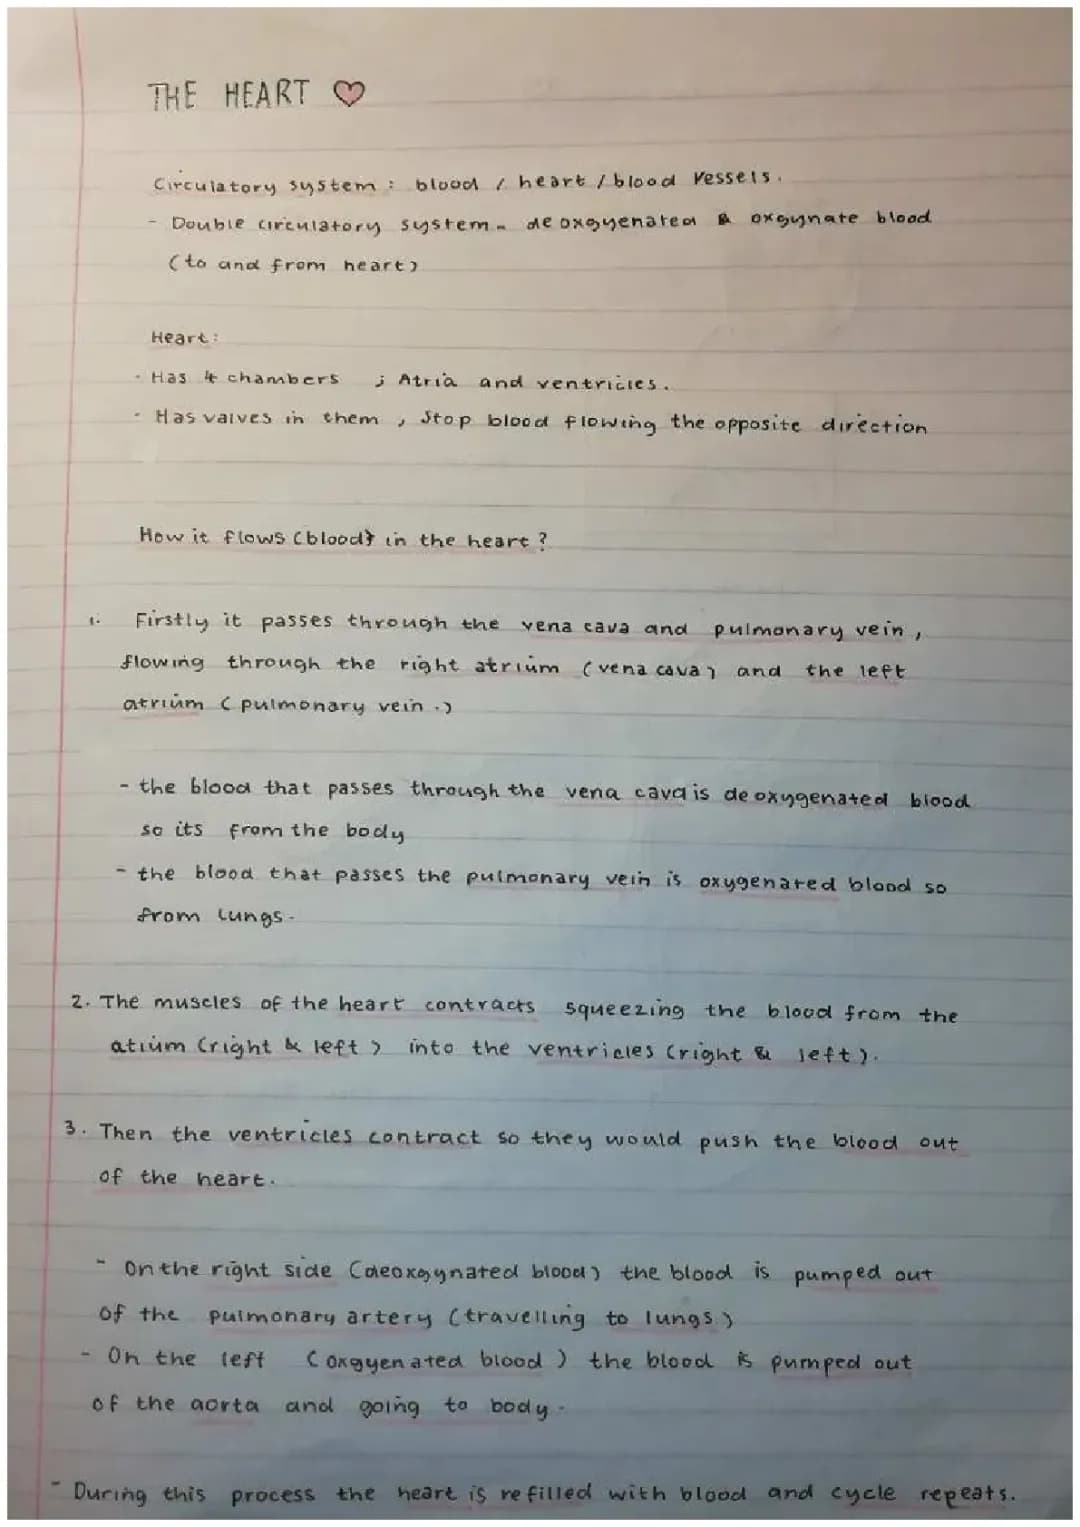 THE HEART
Circulatory system : blood / heart / blood vessels.
- Double circulatory system - deoxgyenated & oxgynate blood
(to and from heart)
Heart:
- Has 4 chambers ; Atria and ventricles.
- Has valves in them , Stop blood flowing the opposite direction
How it flows (blood) in the heart ?
1. Firstly it passes through the vena cava and pulmonary vein ,
flowing through the right atrium (vena cava) and the left
atrium (pulmonary vein .)
- the blood that passes through the vena cava is deoxygenated blood
so its from the body
- the blood that passes the pulmonary vein is oxygenated blood so
from lungs.
2. The muscles of the heart contracts squeezing the blood from the
atium (right & left) into the ventricles (right & left).
3. Then the ventricles contract so they would push the blood out
of the heart.
- On the right side (deoxgynated blood) the blood is pumped out
of the pulmonary artery (travelling to lungs)
- On the left (oxgyenated blood) the blood is pumped out
of the aorta and going to body.
- During this process the heart is refilled with blood and cycle repeats.